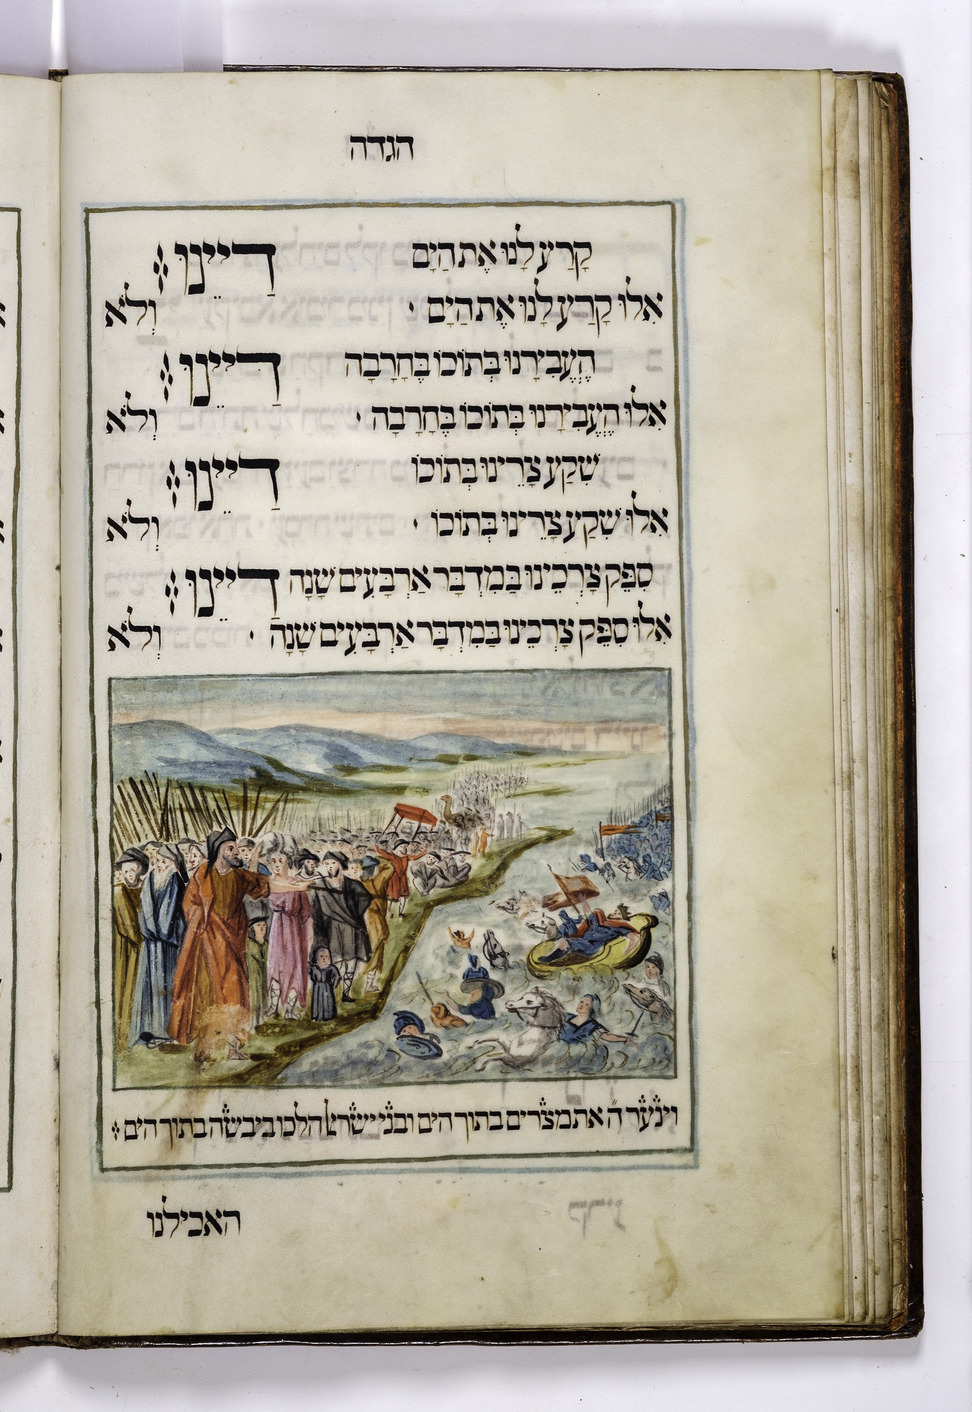 הגדה
קָרַע לָנוּ אֶת הַיָּם דַּיֵּינוּ
אִלּוּ קָרַע לָנוּ אֶת הַיָּם · וְלֹא
הֶעֱבִירָנוּ בְּתוֹכוֹ בֶּחָרָבָה דַּיֵּינוּ
אִלּוּ הֶעֱבִירָנוּ בְּתוֹכוֹ בֶּחָרָבָה · וְלֹא
שִׁקַּע צָרֵינוּ בְּתוֹכוֹ דַּיֵּינוּ
אִלּוּ שִׁקַּע צָרֵינוּ בְּתוֹכוֹ · וְלֹא
סִפֵּק צָרְכֵינוּ בַּמִדְבָּר אַרְבָּעִים שָׁנָה דַּיֵּינוּ
אִלּוּ סִפֵּק צָרְכֵינוּ בַּמִדְבָּר אַרְבָּעִים שָׁנָה · וְלֹא
וינער ה את מצרים בתוך הים ובני ישראל הלכו ביבשה בתוך הים
האכילנו